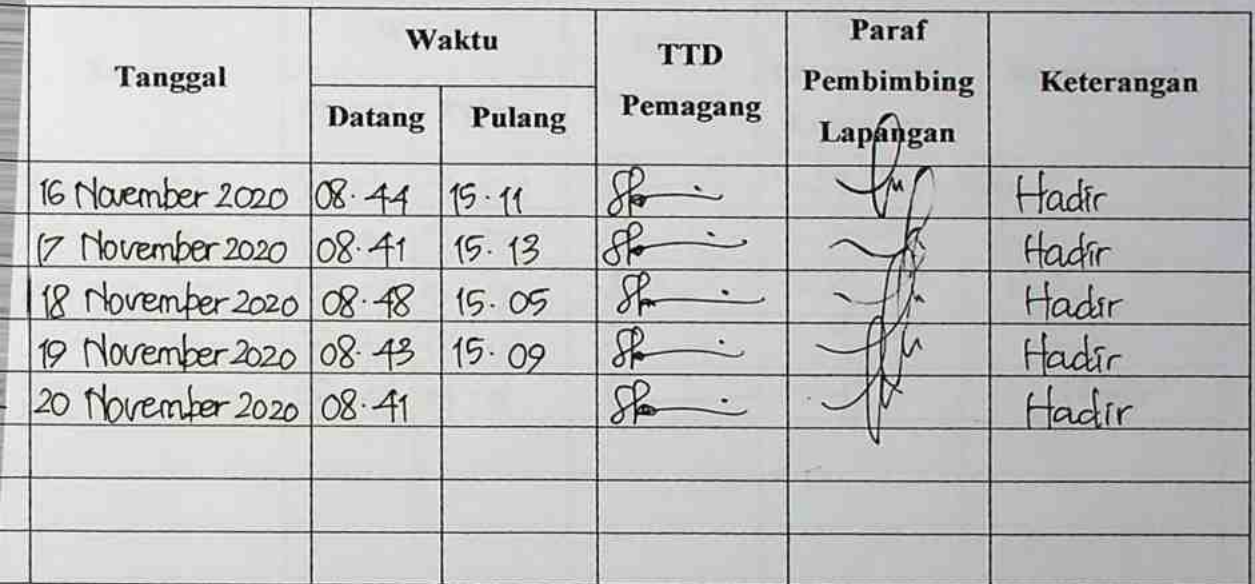 Tanggal Waktu TTD Pemagang Paraf Pembimbing Lapangan Keterangan
Datang Pulang
16 November 2020 08.44 15.11 Hadir
17 November 2020 08.41 15.13 Hadir
18 November 2020 08.48 15.05 Hadir
19 November 2020 08.43 15.09 Hadir
20 November 2020 08.41 Hadir